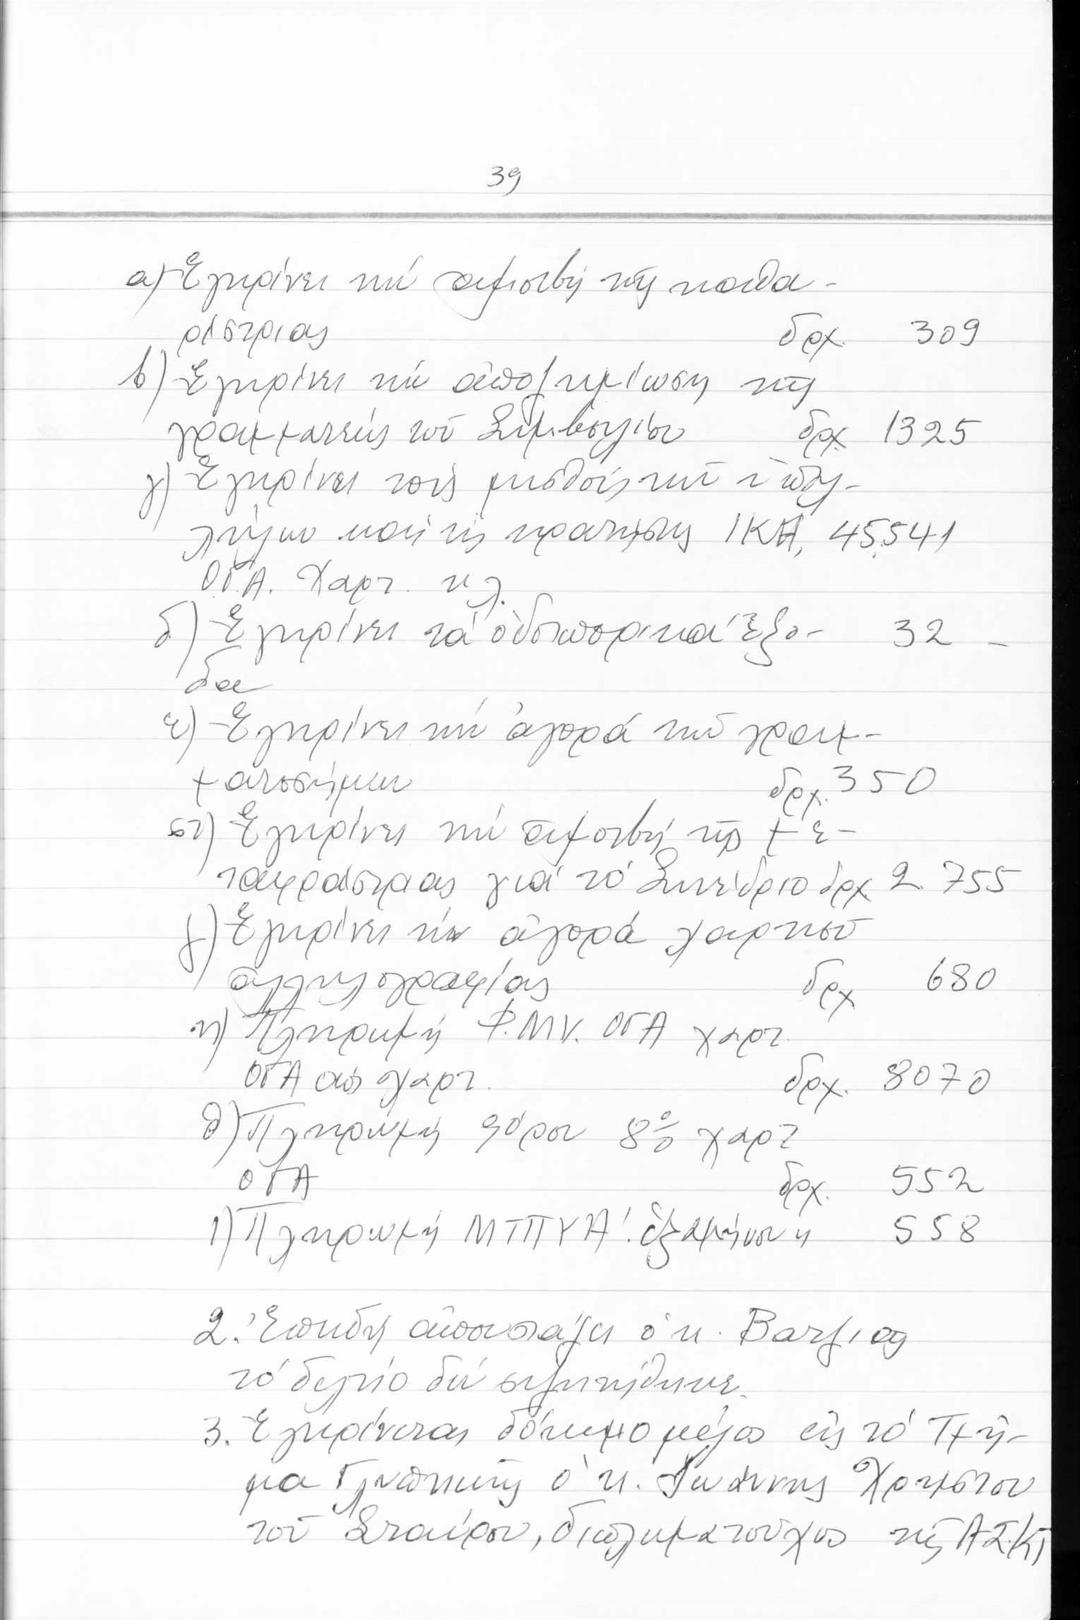 39
α) Ἐγκρίνει τήν ἀμοιβή τῆς καθα-
ρίστριας δρχ. 309
β) Ἐγκρίνει τήν ἀποζημίωση τῆς
γραμματεώς τοῦ Συμβουλίου δρχ 1325
γ) Ἐγκρίνει τούς μισθούς τῶν ὑπαλ-
λήλων καί τίς κρατήσεις ΙΚΑ, 45.541
ΟΓΑ. Χαρτ. κλ.
δ) Ἐγκρίνει τά ὁδοιπορικά ἔξο- 32 -
δα
ε) Ἐγκρίνει τήν ἀγορά τῶν γραμ-
ματοσήμων δρχ. 350
στ) Ἐγκρίνει τήν ἀμοιβή τῆς με-
ταφράστριας γιά τό Συνέδριο δρχ 2.755
ζ) Ἐγκρίνει τήν ἀγορά χαρτιοῦ
ἀλληλογραφίας δρχ 680
η) Πληρωμή Φ.Μ.Υ. ΟΓΑ χαρτ.
ΟΓΑ χαρτ. δρχ. 8070
θ) Πληρωμή φόρου 8% χαρτ
ΟΓΑ δρχ. 552
ι) Πληρωμή ΜΤΠΥ Α! ἑξαμήνου 558
2. Ἐπειδή ἀπουσιάζει ὁ κ. Βατζιας
τό δελτίο δέν συζητήθηκε.
3. Ἐγκρίνεται δόκιμο μέλος εἰς τό Τμῆ-
μα Γλυπτικῆς ὁ κ. Ἰωάννης Χρήστου
τοῦ Σταύρου, διπλωματοῦχος τῆς ΑΣΚΤ